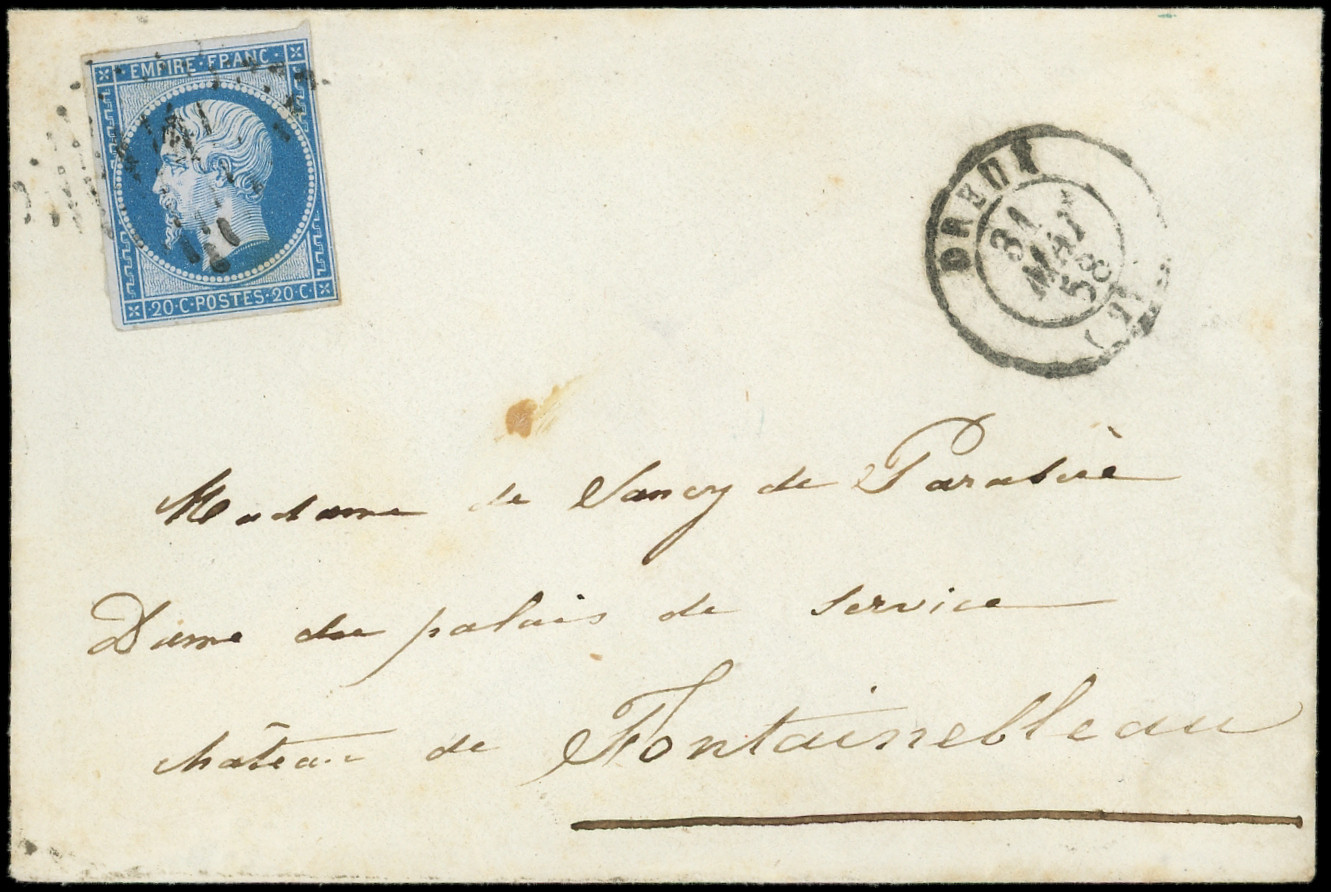 EMPIRE·FRANC·
·20·C·POSTES·20·C·
DREUX
31
MAI
58
(27)
Madame de Sancy de Parabère
Dame du palais de service
château de Fontainebleau